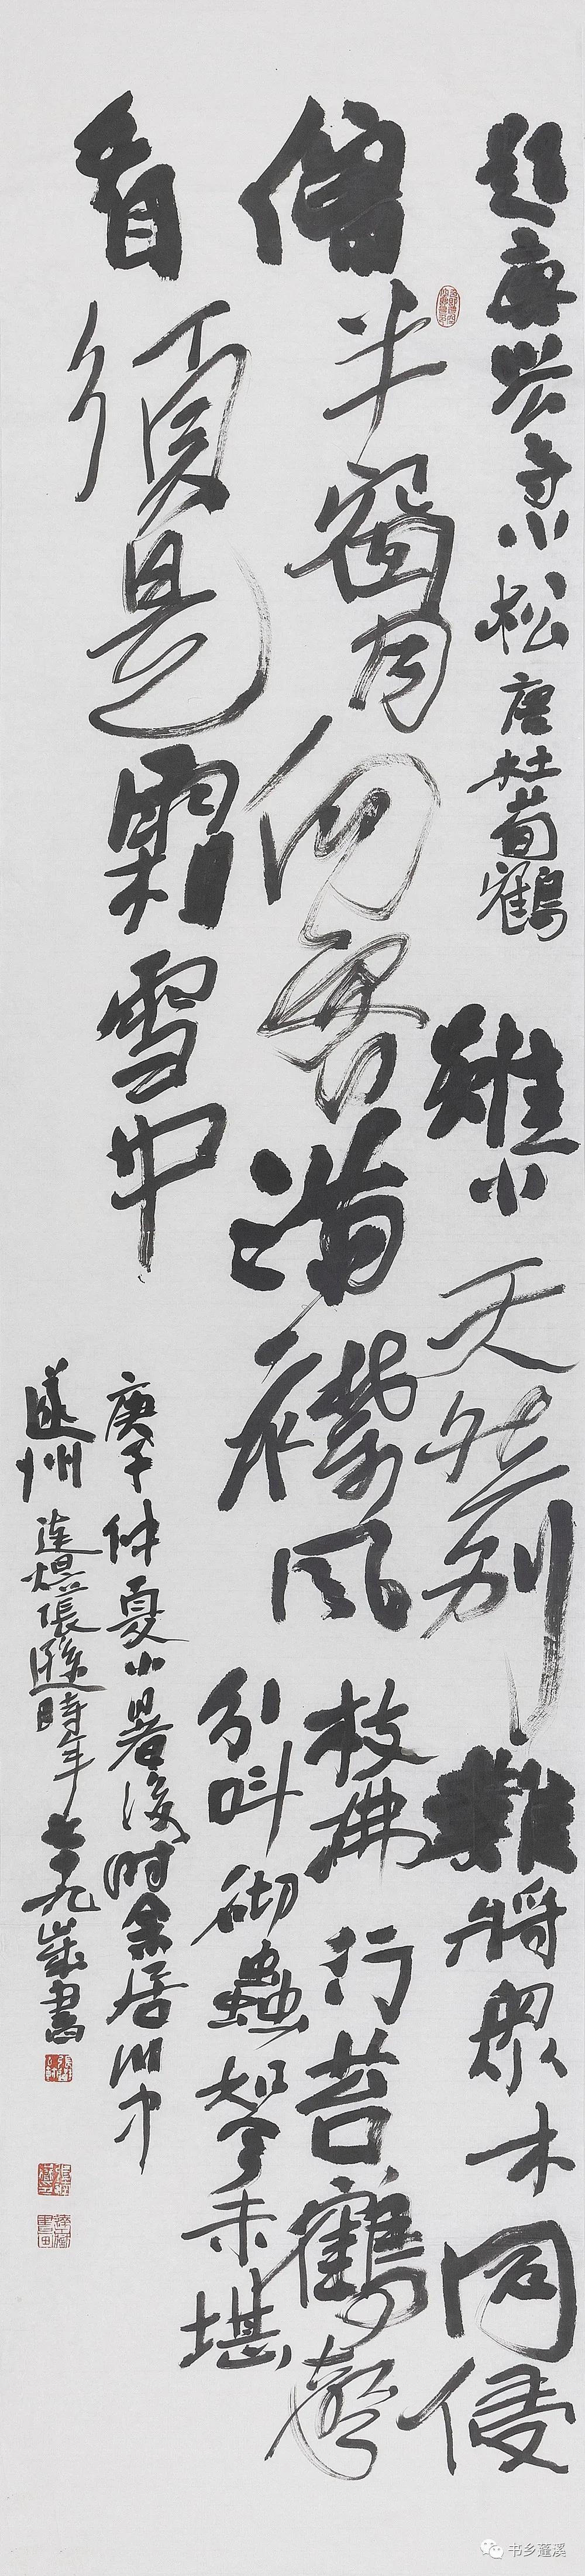 題唐兴寺小松 唐杜荀鶴 雖小天然別難將眾木同侵
僧半窗月向客滿襟風枝拂行苔鶴聲
分叫砌蟲如今未堪
看須是霜雪中
庚子仲夏小暑後時余居川中
遂州張遜時年七十九歲書
书乡蓬溪